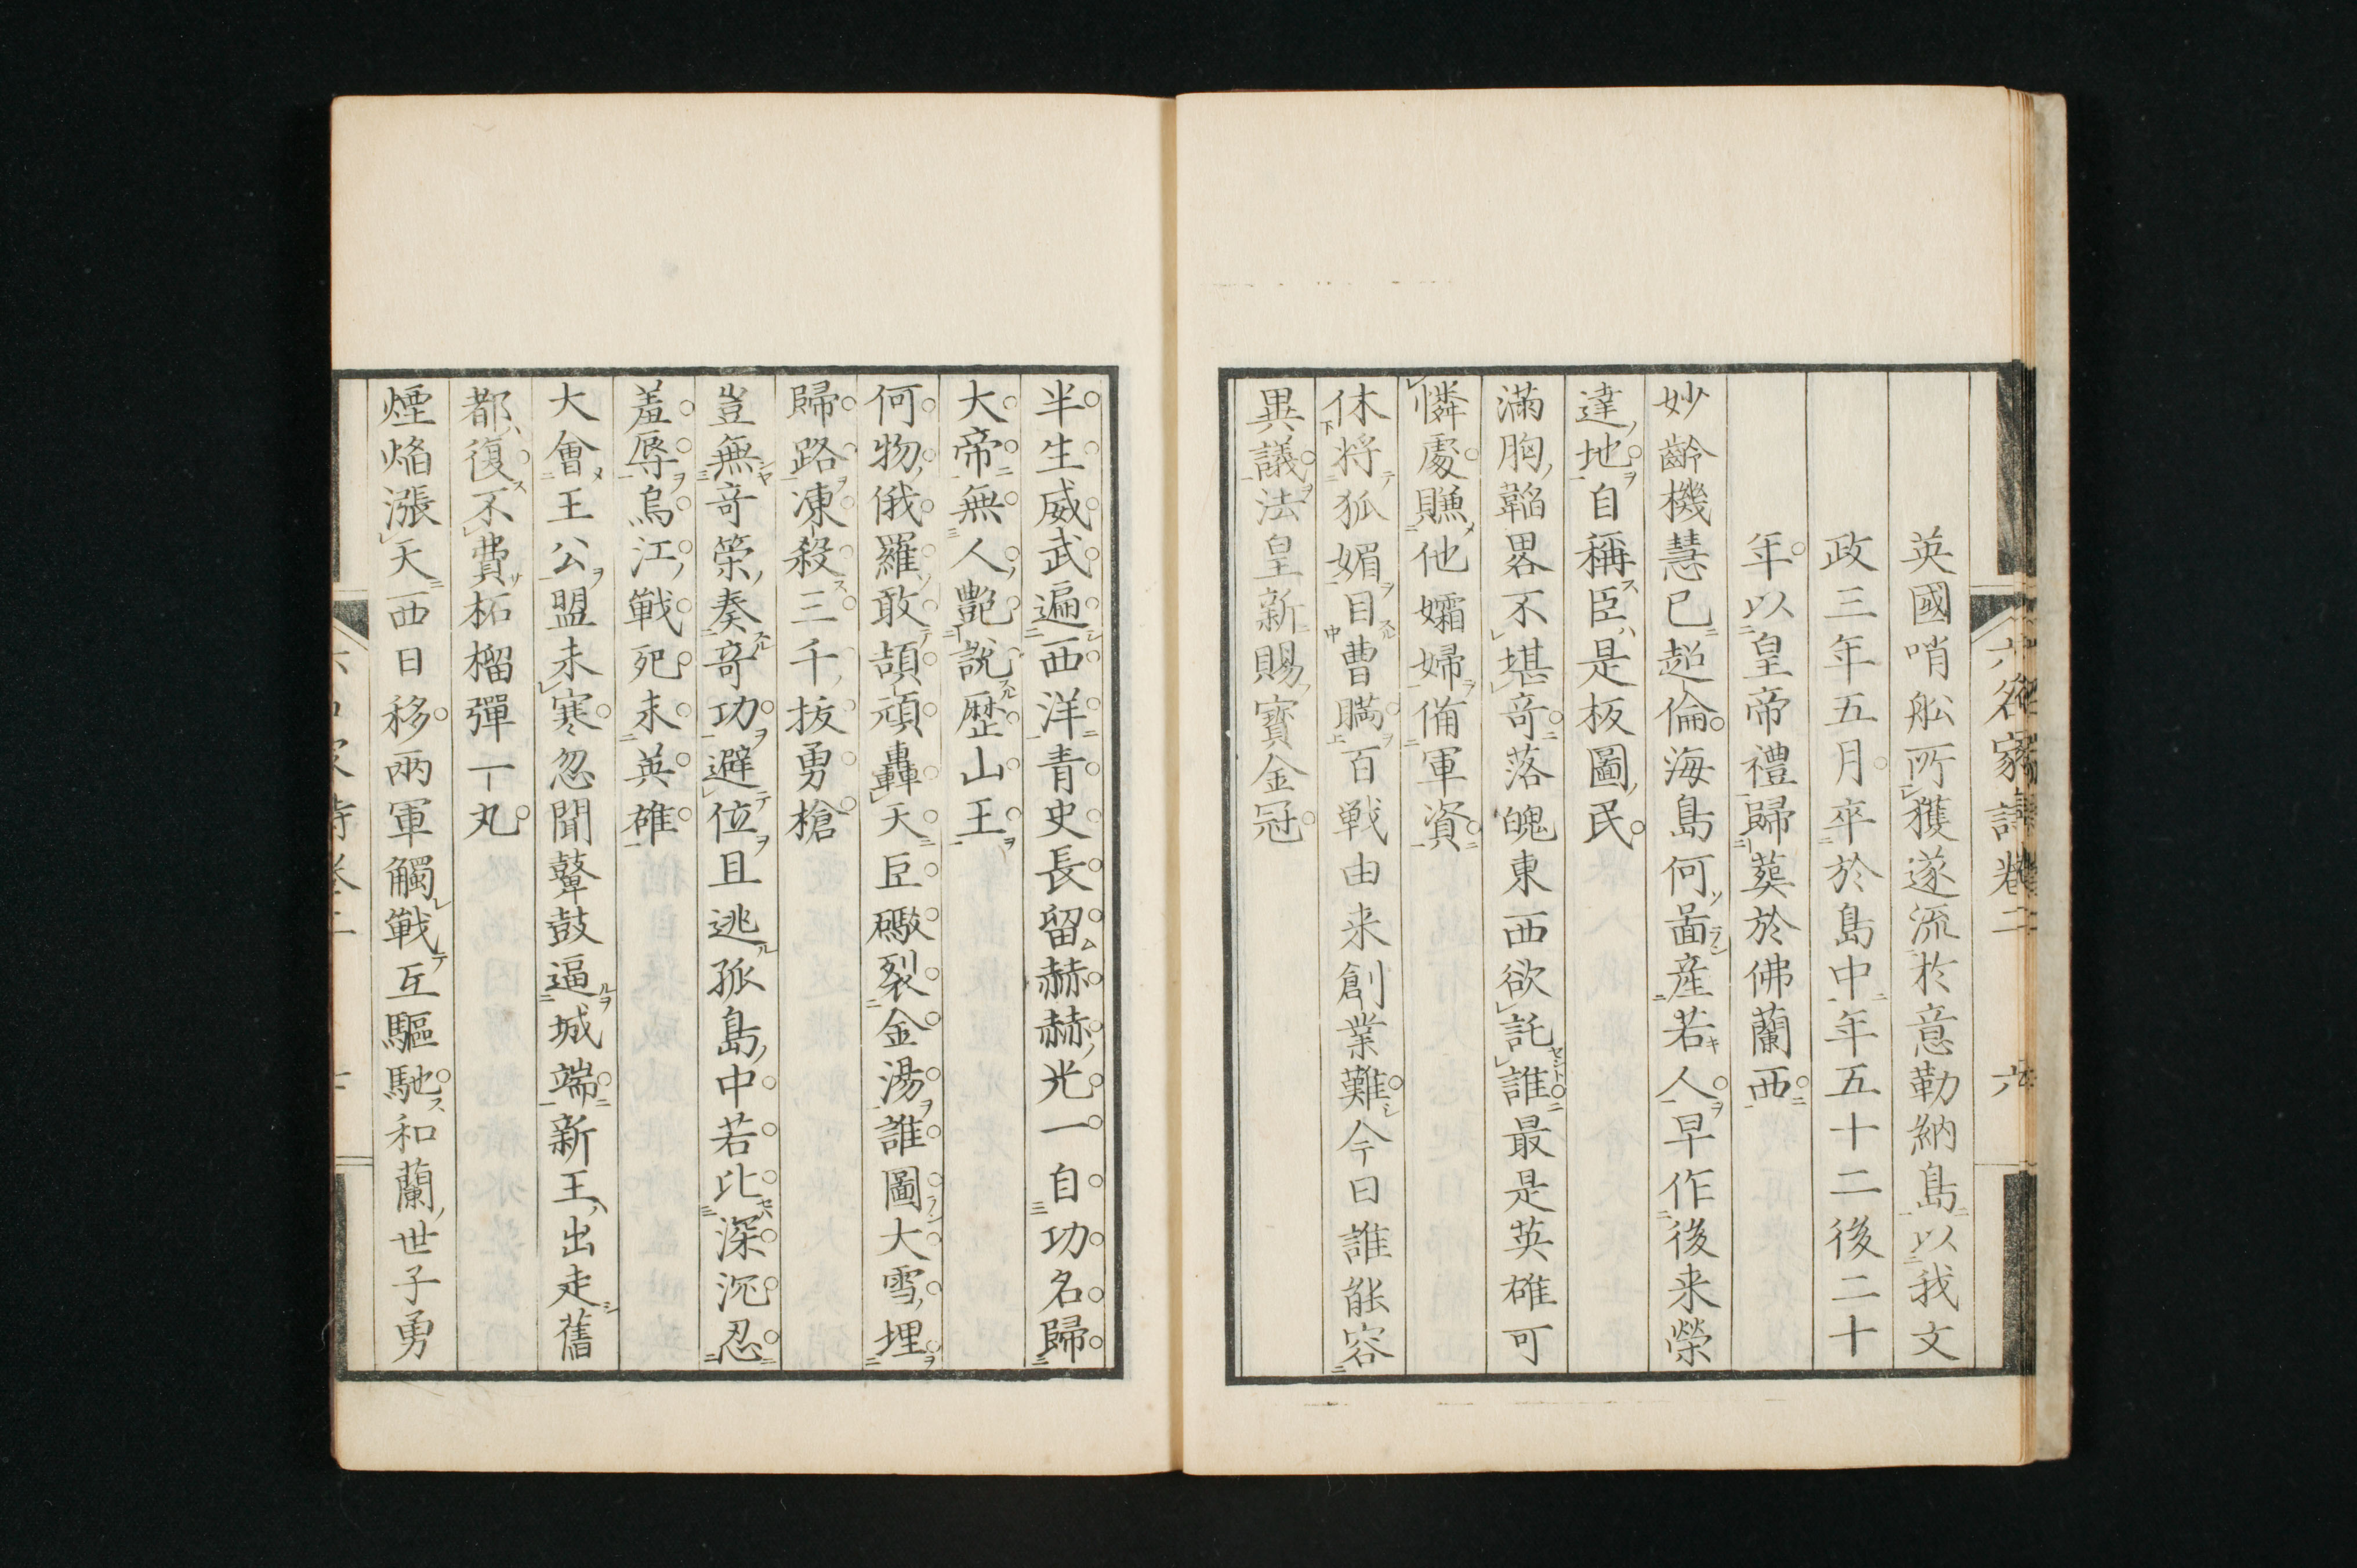 六名家詩卷二 六
英國哨舩所獲遂流於意勒納島以我文
政三年五月卒於島中年五十二後二十
年以皇帝禮歸葬於佛蘭西
妙齡機慧已超倫海島何啚産若人早作後来榮
達地自稱臣是板圖民
滿胸韜畧不堪奇落魄東西欲託誰最是英雄可
憐處賺他孀婦備軍資
休将狐媚目曹瞞百戦由来創業難今日誰能容
異議法皇新賜寶金冠
半生威武遍西洋青史長留赫赫光一自功名歸
大帝無人艷說歴山王
何物俄羅敢頡頑轟天巨礮裂金湯誰圖大雪埋
歸路凍殺三千抜勇槍
豈無奇策奏奇功避位且逃孤島中若比深沉忍
羞辱烏江戦死未英雄
大會王公盟未寒忽聞鼙鼓逼城端新王出走舊
都復不費柘榴彈一丸
煙焔漲天西日移兩軍觸戦互驅馳和蘭世子勇